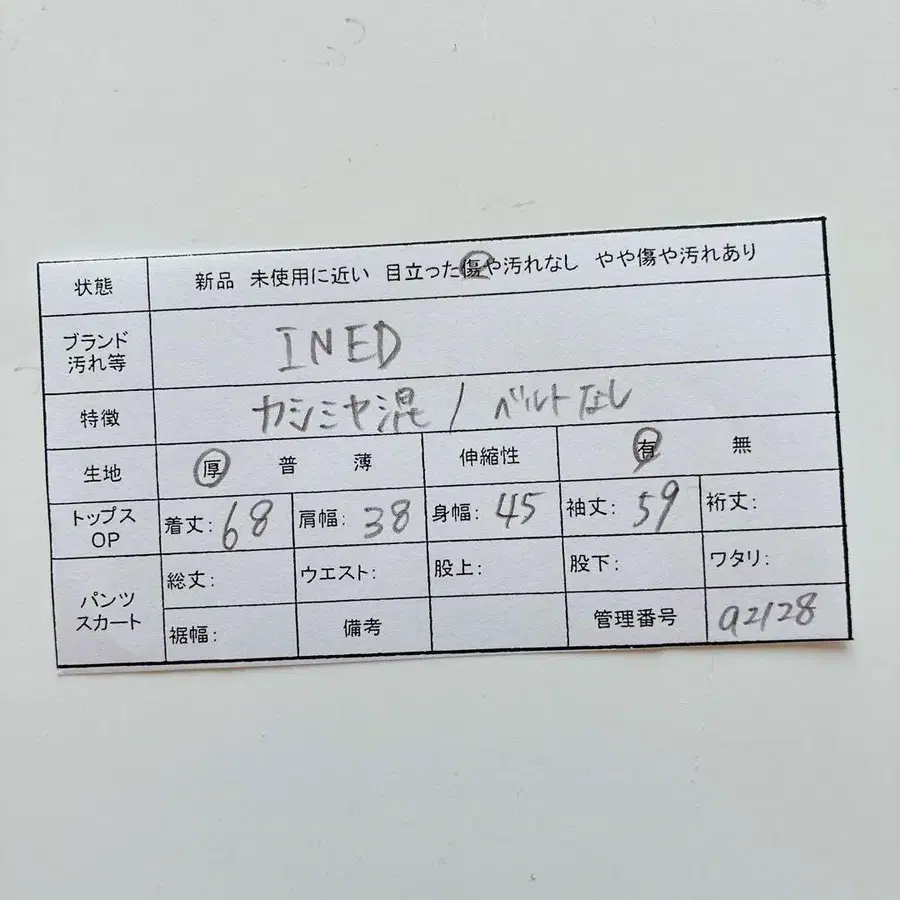 状態 新品 未使用に近い 目立った傷や汚れなし やや傷や汚れあり
ブランド
汚れ等 INED
特徴 カシミヤ混 / ベルトなし
生地 厚 普 薄 伸縮性 有 無
トップス
OP 着丈: 68 肩幅: 38 身幅: 45 袖丈: 59 裄丈:
パンツ
スカート
総丈: ウエスト: 股上: 股下: ワタリ:
裾幅: 備考 管理番号 a2128